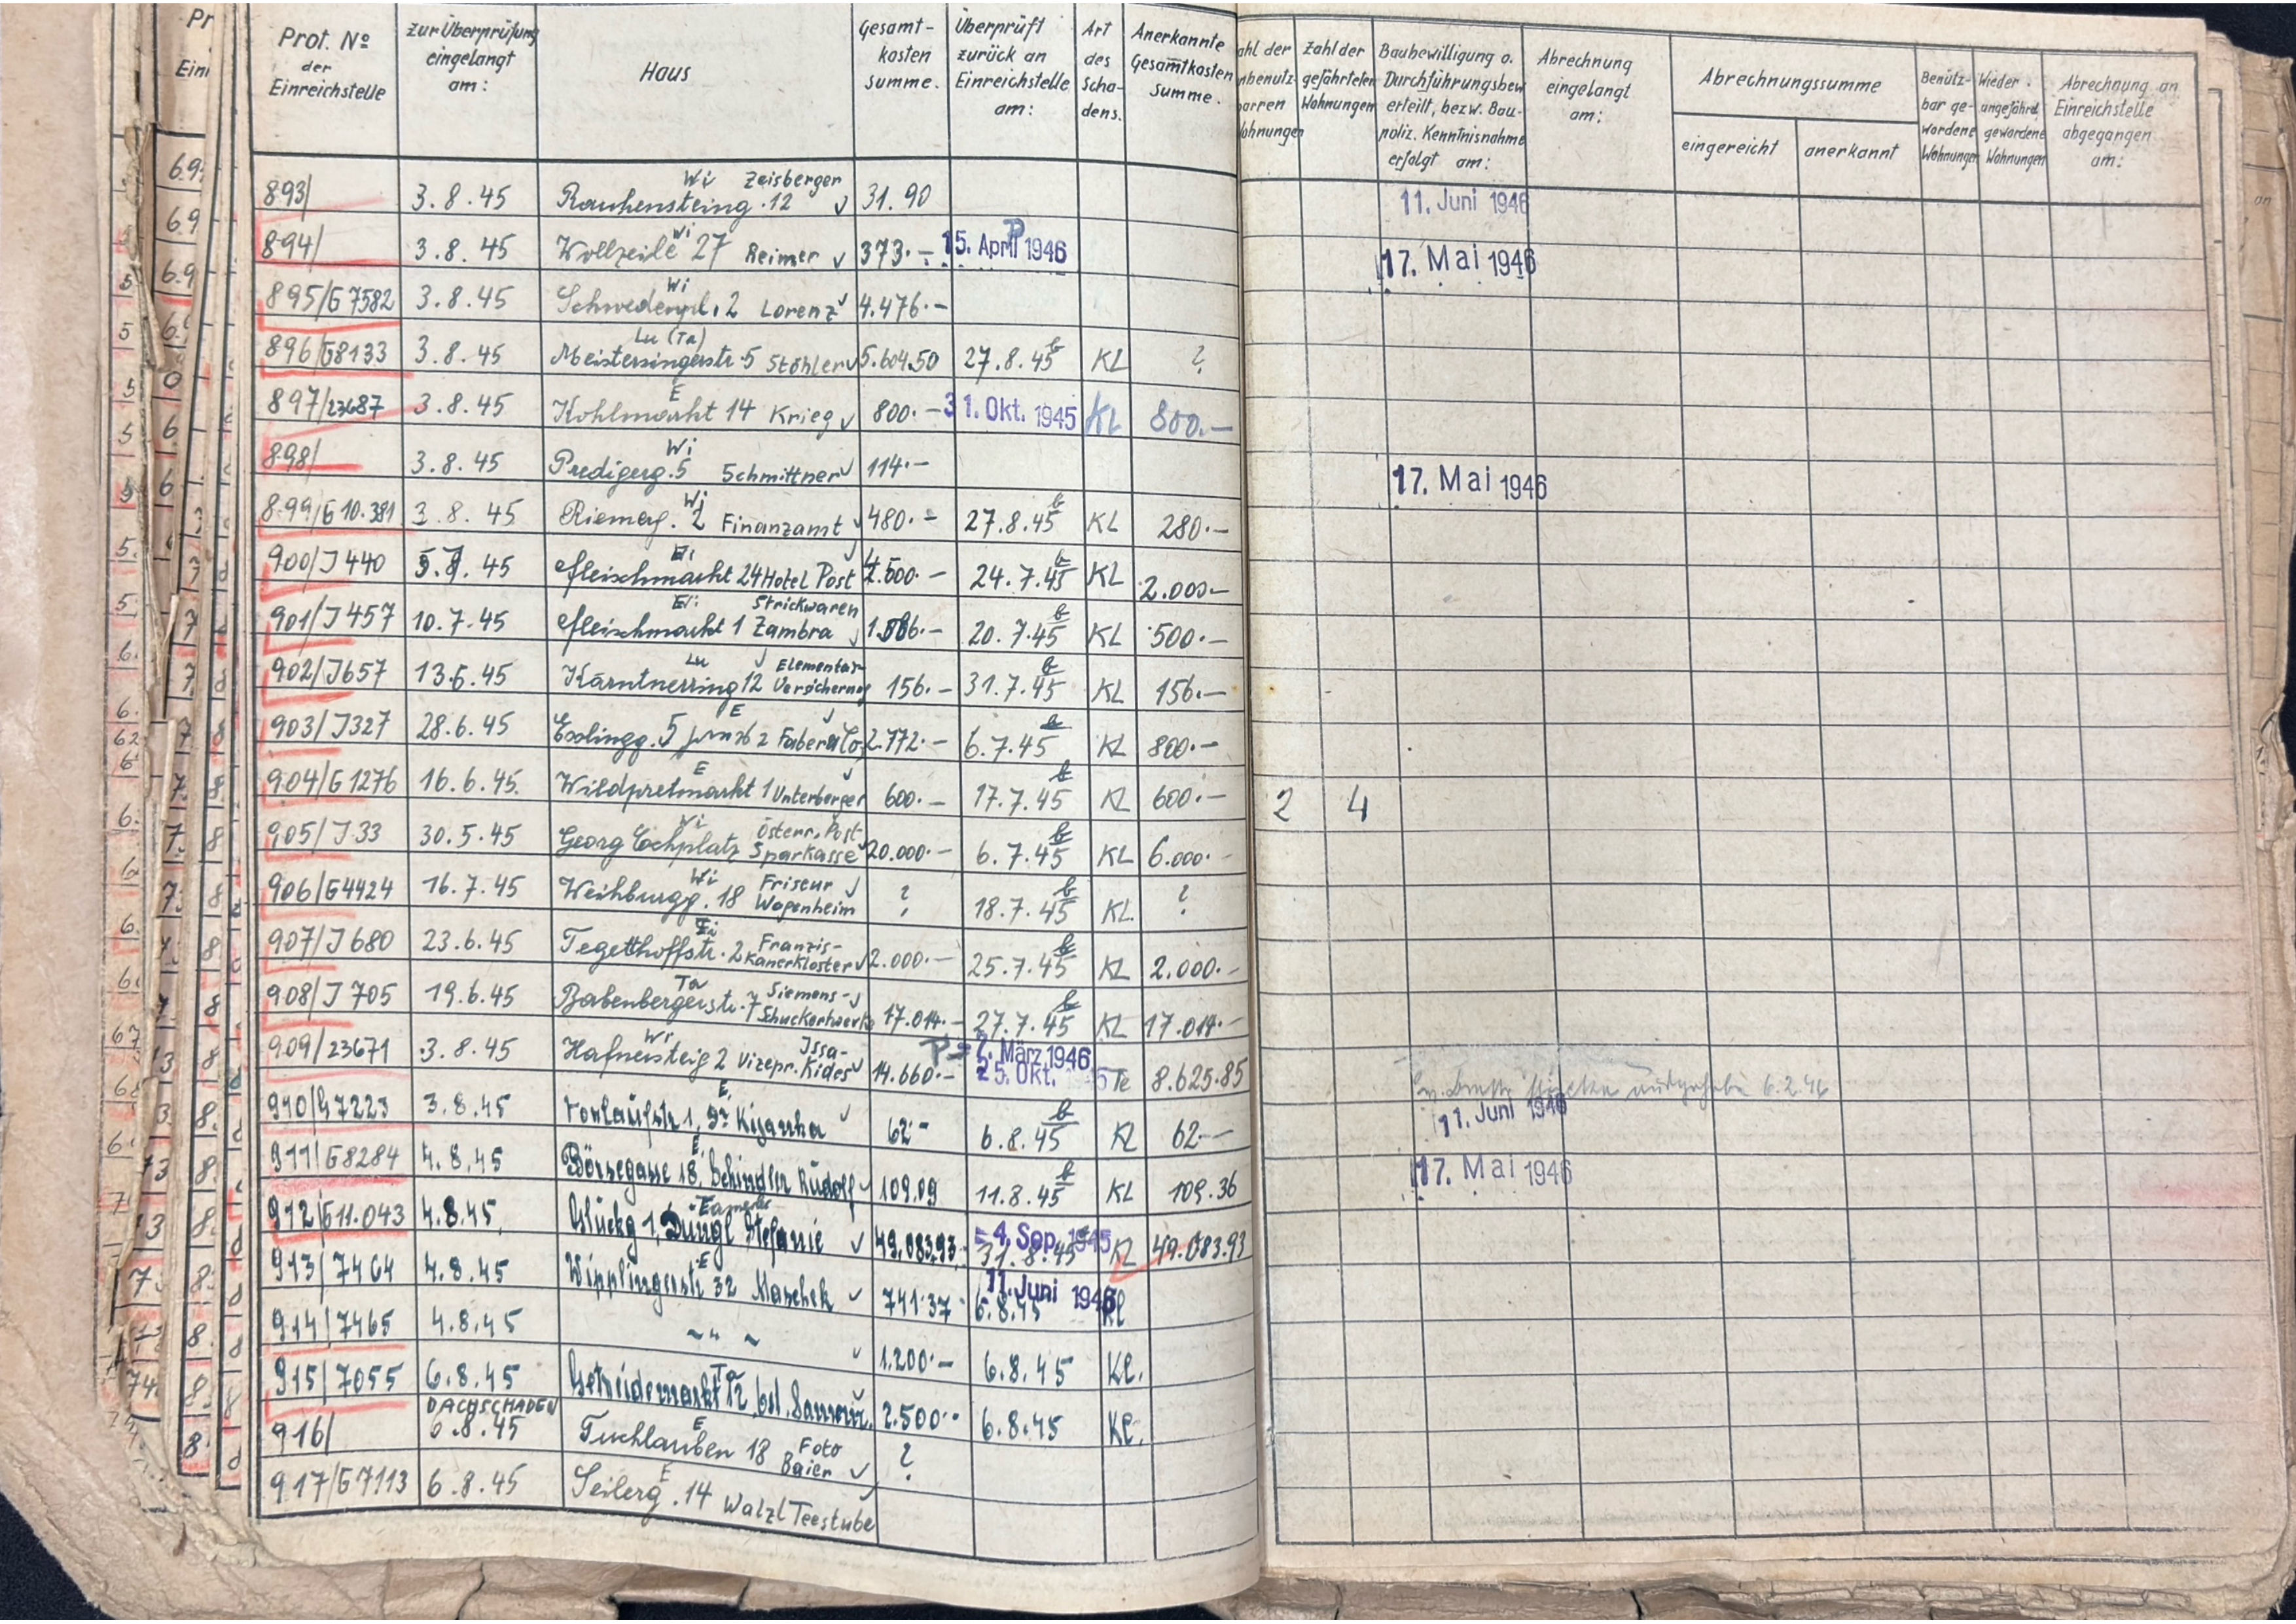 Prot. No der Einreichstelle | zur Überprüfung eingelangt am: | Haus | Gesamt-kosten summe. | Überprüft zurück an Einreichstelle am: | Art des Scha-dens. | Anerkannte Gesamtkosten Summe. | ahl der nbenutz-barren Wohnungen | Zahl der gefährteten Wohnungen | Baubewilligung o. Durchführungsbew erteilt, bezw. Bau-poliz. Kenntnisnahme erfolgt am: | Abrechnung eingelangt am: | Abrechnungssumme eingereicht | anerkannt | Benütz-bar ge-wordene Wohnungen | Wieder angefährd. gewordene Wohnungen | Abrechnung an Einreichstelle abgegangen am:
893/ | 3.8.45 | Wi Zeisberger Rauhensteing. 12 | 31.90 | 11. Juni 1946
894/ | 3.8.45 | Wi Wollzeile 27 Reimer | 373.- | P 15. April 1946 | 17. Mai 1946
895/G7582 | 3.8.45 | Wi Schwedenpl. 2 Lorenz | 4.476.-
896/G8133 | 3.8.45 | Lu (Ta) Meistersingerstr. 5 Stöhler | 5.604.50 | 27.8.45 | KL | ?
897/23687 | 3.8.45 | E Kohlmarkt 14 Krieg | 800.- | 31. Okt. 1945 | KL | 800.-
898/ | 3.8.45 | Wi Predigerg. 5 Schmittner | 114.- | 17. Mai 1946
899/G10.381 | 3.8.45 | Wi Riemerg. 2 Finanzamt | 480.- | 27.8.45 | KL | 280.-
900/J440 | .45 | Fleischmarkt 24 Hotel Post | .500.- | 24.7.45 | KL | 2.000.-
901/J457 | 10.7.45 | Fleischmarkt 1 Strickwaren Zambra | 20.7.45 | KL | 500.-
902/J657 | 13.6.45 | Lu Kärntnerring 12 Elementar-Versicherung | 156.- | 31.7.45 | KL | 156.-
903/J327 | 28.6.45 | E Esslingg. 5 Faber & Co | 2.772.- | 6.7.45 | KL | 800.-
904/G1276 | 16.6.45. | E Wildpretmarkt 1 Unterberger | 600.- | 17.7.45 | KL | 600.- | 2 | 4
905/J33 | 30.5.45 | Wi Georg Cochplatz Österr. Post-Sparkasse | 20.000.- | 6.7.45 | KL | 6.000.-
906/G4424 | 16.7.45 | Wi Weihburgg. 18 Friseur Wagenheim | ? | 18.7.45 | KL. | ?
907/J680 | 23.6.45 | Tegetthoffstr. 2 Franzis-kanerkloster | 2.000.- | 25.7.45 | KL | 2.000.-
908/J705 | 19.6.45 | Ta Babenbergerstr. 7 Siemens-Schuckertwerke | 17.014.- | 27.7.45 | KL | 17.014.-
909/23671 | 3.8.45 | Wi Hafnersteig 2 Vizepr. Issa-Kides | 14.660.- | 2. März 1946 25. Okt. 5 | Te | 8.625.85 | 6.2.46
910/G7223 | 3.8.45 | E Vorlaufstr. 1, | 62.- | 6.8.45 | KL | 62.- | 11. Juni 1946
911/G8284 | 4.8.45 | E Börsegasse 18, Schindler Rudolf | 109.09 | 11.8.45 | KL | 109.36 | 17. Mai 1946
912/G11.043 | 4.8.45. | Glückg 1, Dungl Stefanie | 49.083.93 | 4. Sep. 1945 31.8.45 | KL | 49.083.93
913/7464 | 4.8.45 | E Wipplingerstr 32 Maschek | 741.37 | 11. Juni 1946 6.8.45 | Kl
914/7465 | 4.8.45 | ~ " ~ | 1.200.- | 6.8.45 | Kl.
915/7055 | 6.8.45 | Ta Getreidemarkt 12, | 2.500.- | 6.8.45 | Kl.
916/ | DACHSCHADEN 6.8.45 | E Tuchlauben 18 Foto Baier | ?
917/G7113 | 6.8.45 | E Seilerg. 14 Walzl Teestube